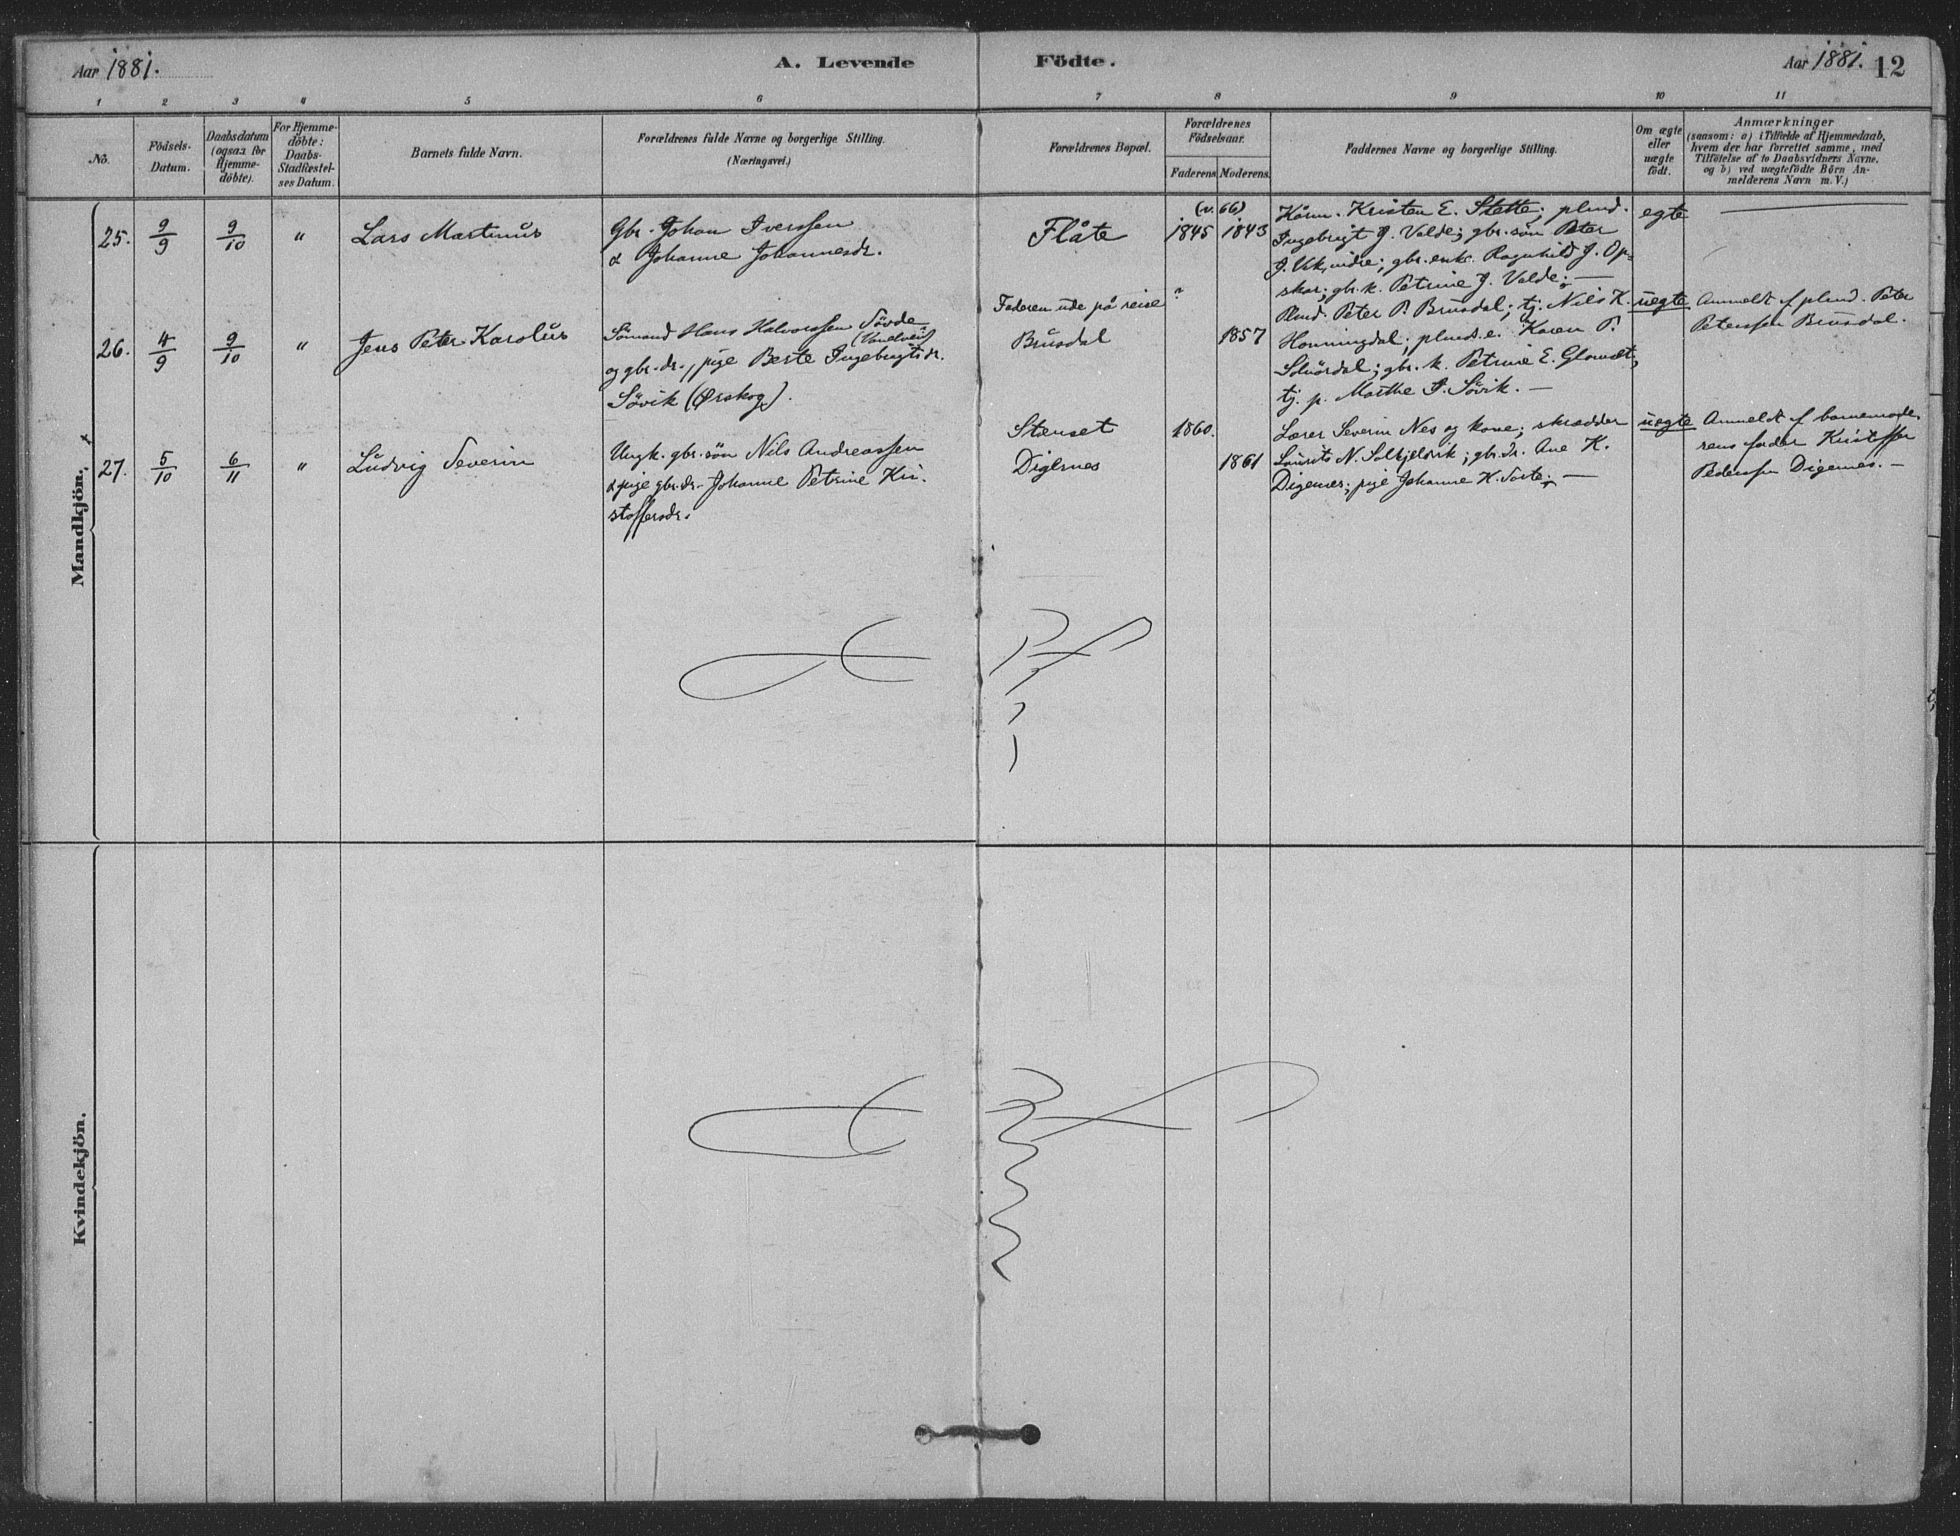 Aar 1881.
A. Levende
Födte.
Aar 1881. 12
1 2 3 4 5 6 7 8 9 10 11
No.
Födsels-
Datum.
Daabsdatum
(ogsaa for
Hjemme-
döbte).
For Hjemme-
döbte:
Daabs-
Stadfæstel-
ses Datum.
Barnets fulde Navn.
Forældrenes fulde Navne og borgerlige Stilling.
(Næringsvei.)
Forældrenes Bopæl.
Forældrenes
Födselsaar.
Faderens Moderens.
Faddernes Navne og borgerlige Stilling.
Om ægte
eller
uægte
født.
Anmærkninger
(saasom: a) i Tilfælde af Hjemmedaab,
hvem der har forrettet samme, med
Tilföielse af to Daabsvidners Navne,
og b) ved uægtefödte Börn An-
melderens Navn m. V.)
Mandkjön.
25. 9/9 9/10 " Lars Martinus
Gbr. Johan Iverssen
& Johanne Johannesdr.
Flåte
(v. 66)
1845 1843
Kårm. Kristen E. Stette; plmd.
Ingebrigt J. Valde; gbr. søn Peter
J. ; gbr. enke Ragnhild J. Op-
skar; gbr. k. Petrine J. Valde. —
egte
26. 4/9 9/10 " Jens Peter Karolus
Sömand Hans Halvorssen Søvde
(Vandven)
og gbr. dr., pige Berte Ingebrigtsdr.
Søvik (Ørskog).
Faderen ude på reise
Brusdal
? 1857
Plmd. Peter P. Brusdal; tj. Nils K.
Honningdal; plmds e. Karen P.
; gbr. k. Petrine E. ;
tj. p. Marthe I. Søvik. —
uegte
Anmeldt af plmd. Peter
Peterssen Brusdal.
27. 5/10 6/11 " Ludvig Severin
Ungk. gbr. søn Nils Andreassen
& pige gbr. dr. Johanne Petrine Kri-
stoffersdr.
Stenset
Digernes
1860. 1861
Lærer Severin Nes og kone; skrædder
Laurits N. Solbjelvik; gbr. dr. Ane K.
Digernes; pige Johanne K. Torte. —
uegte
Anmeldt af barnemode-
rens fader Kristoffer
Pederssen Digernes. —
Kvindekjön.